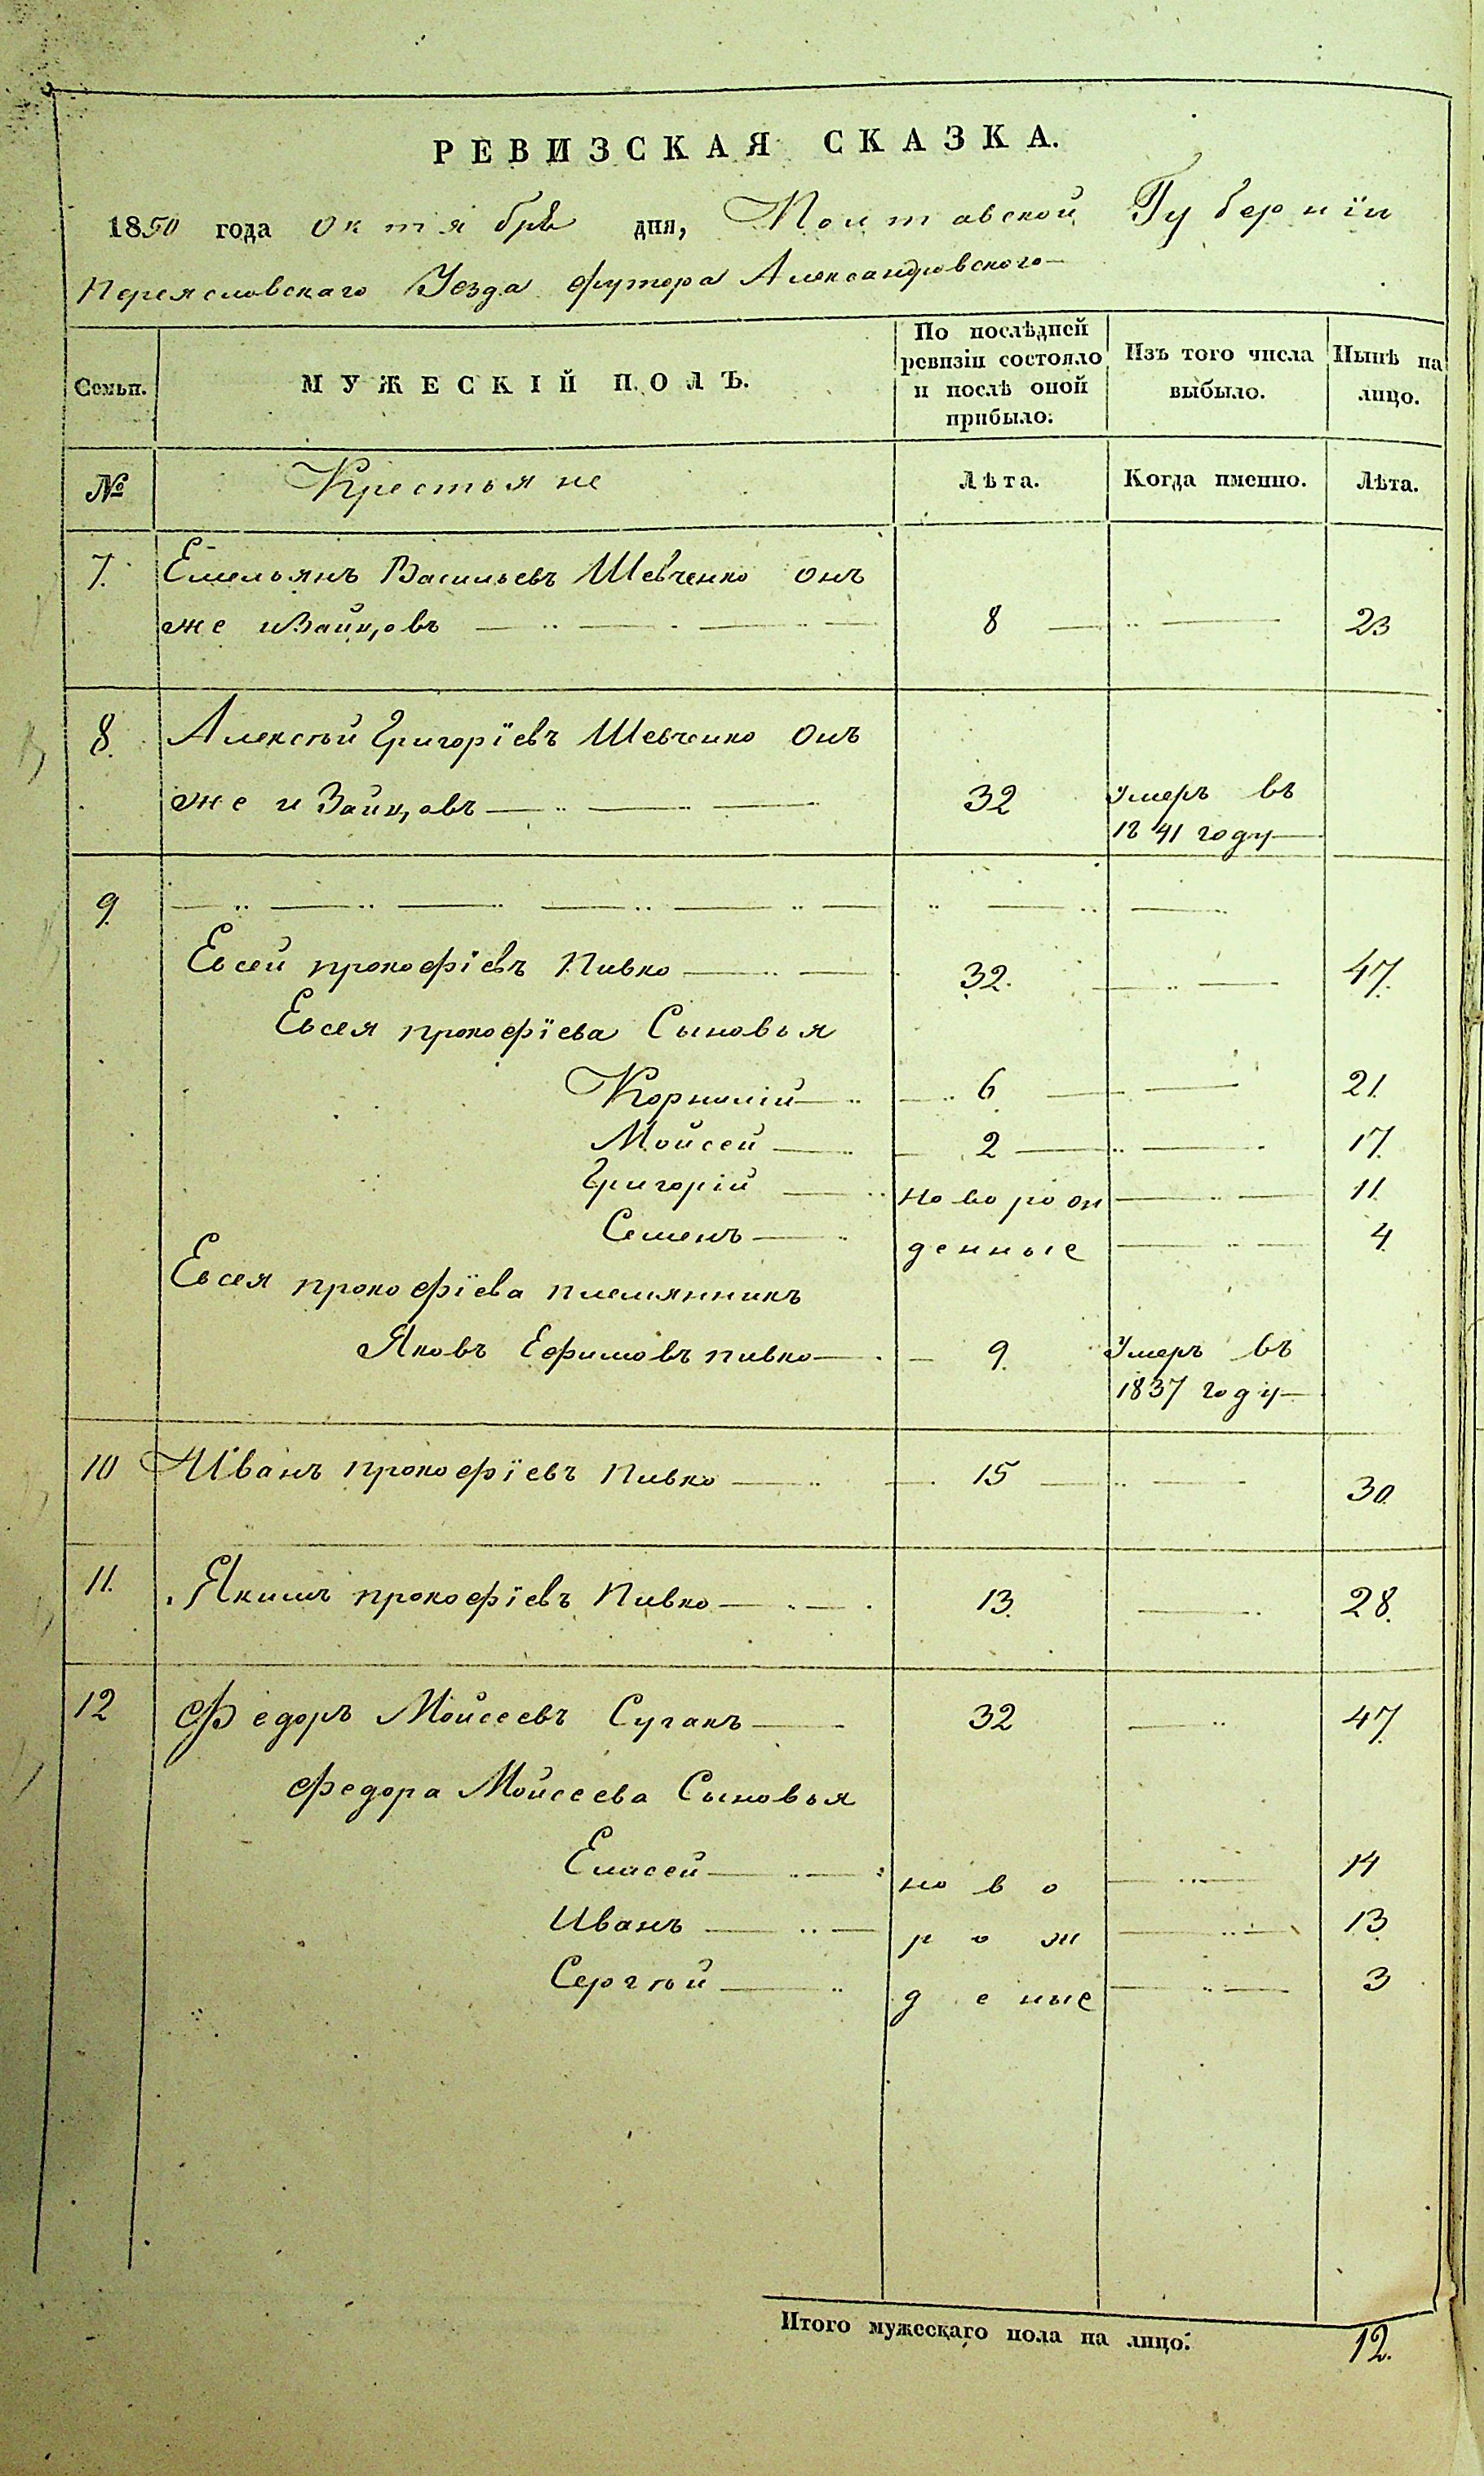 РЕВИЗСКАЯ СКАЗКА.
1850 года октября дня, Полтавской Губернїи
Переясловскаго Уезда футора Александровского
Семьи. МУЖЕСКІЙ ПОЛЪ. По послѣдней ревизіи состояло и послѣ оной прибыло. Изъ того числа выбыло. Нынѣ на лицо.
№ Крестьяне Лѣта. Когда именно. Лѣта.
7. Емельянъ Васильевъ Шевченко онъ
же и Зайцовъ 8 23
8. Алексѣй Григорїевъ Шевченко Онъ
же и Зайцовъ 32 Умеръ въ
1841 году
9.
Евсей прокофїевъ Пивко 32. 47.
Евсея прокофїева Сыновья
Корнилій 6 21.
Мойсей 2 17.
Григорій новорож 11.
Семенъ денные 4.
Евсея прокофїева племянникъ
Яковъ Ефимовъ пивко 9. Умеръ въ
1837 году
10 Иванъ прокофїевъ Пивко 15 30.
11. Якимъ прокофїевъ Пивко 13. 28.
12 Федоръ Мойсеевъ Сугакъ 32 47.
Федора Мойсеева Сыновья
Елисей ново 14
Иванъ рож 13
Сергѣй деные 3
Итого мужескаго пола на лицо. 12.